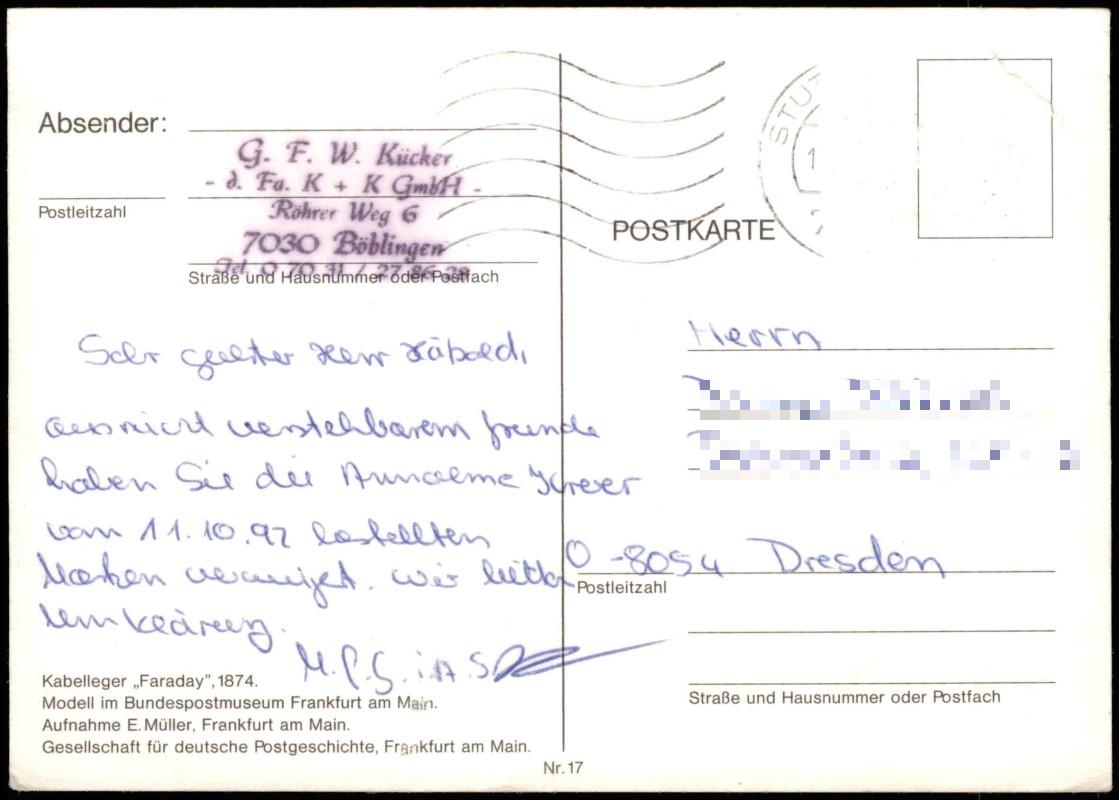 Absender:
G. F. W. Kücker
- d. Fa. K + K GmbH -
Röhrer Weg 6
7030 Böblingen
Postleitzahl
Straße und Hausnummer oder Postfach
STU
POSTKARTE
Sehr geehrter Herr
aus nicht verstehbarem Grunde
haben Sie die Annahme Ihrer
vom 11.10.92 bestellten
Marken verweigert. Wir bitten
um
Kabelleger „Faraday”, 1874.
Modell im Bundespostmuseum Frankfurt am Main.
Aufnahme E. Müller, Frankfurt am Main.
Gesellschaft für deutsche Postgeschichte, Frankfurt am Main.
Nr. 17
Herrn
O -8054 Dresden
Postleitzahl
Straße und Hausnummer oder Postfach